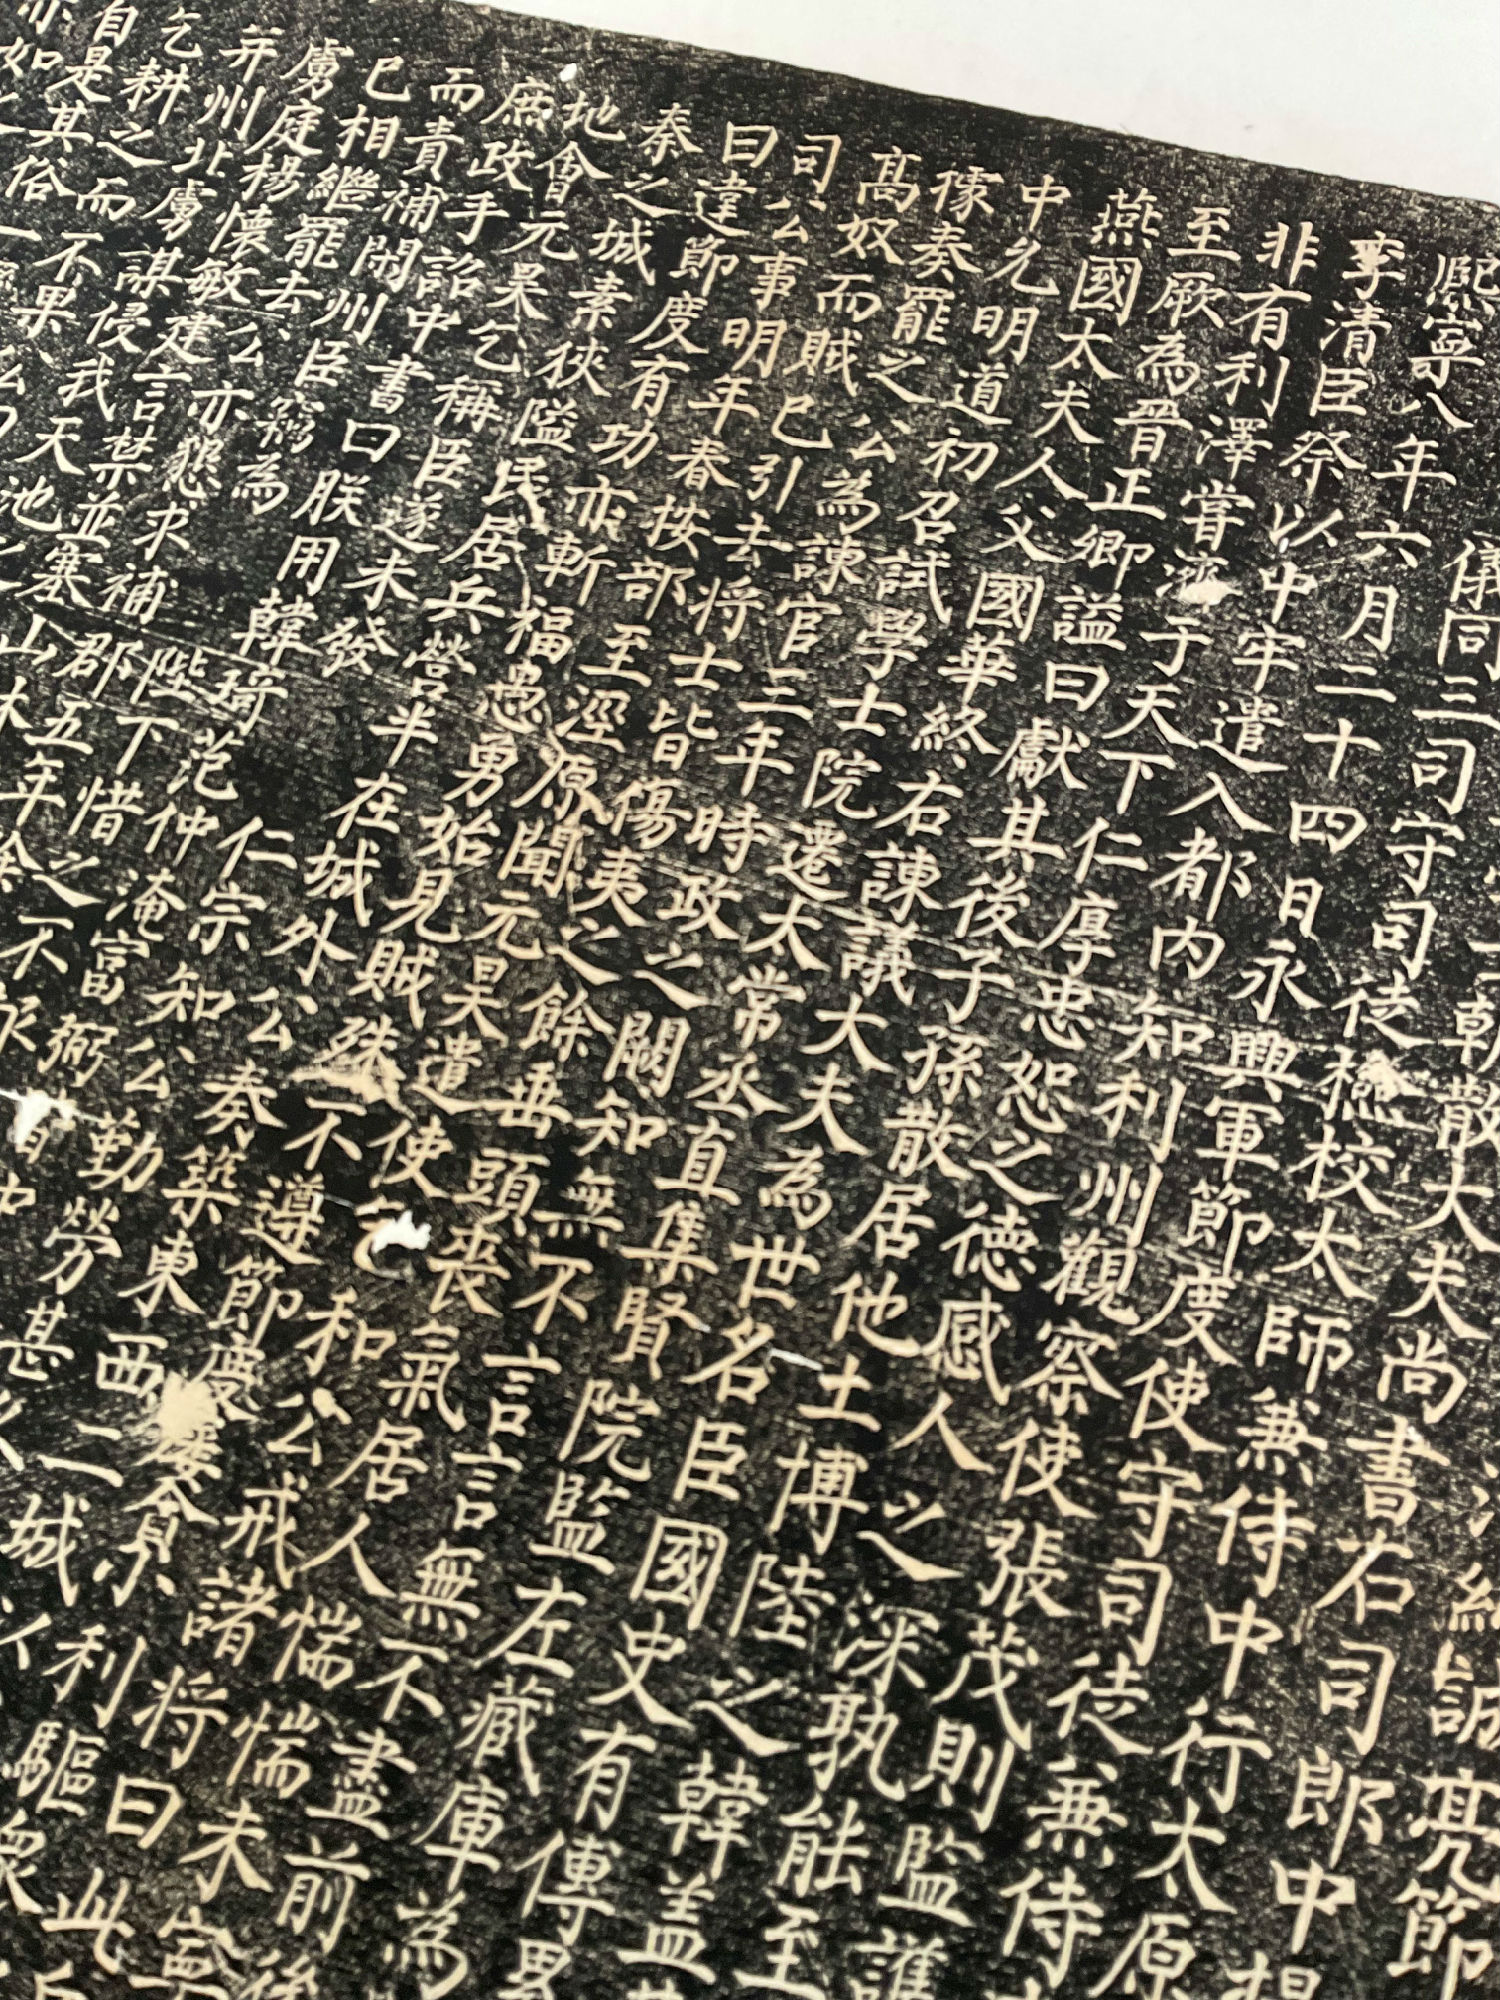 純誠亮節
朝散大夫尚書右司郎中提
儀同三司守司徒檢校太師兼侍中行太原
熙寧八年六月二十四日永興軍節度使守司徒兼侍
李清臣祭以中牢遣入都内知利州觀察使張茂則監護
非有利澤嘗濟于天下仁厚忠恕之德感人之深孰能至
至厥為晉正卿謚曰獻其後子孫散居他土博陸之韓蓋
燕國太夫人父國華終右諫議大夫為世名臣國史有傳
中允明道初召試學士院遷太常丞直集賢院監左藏庫為
奏罷之公為諫官三年時政之闕知無不言言無不盡前後
高奴而賊已引去將士皆傷夷之餘垂頭喪氣居人惴惴未寧
司公事明年春按部至涇原聞元昊遣使和公戒諸將曰此
曰違節度有功亦斬福恚勇始見賊殊不遵節度利驅眾
秦之城素狹隘民居兵營半在城外公奏築東西二城以
地會元昊乞稱臣遂未發仁宗知公勤勞甚
庶政手詔中書曰朕用韓琦范仲淹富弼
而責補閑州臣竊為陛下惜之不
已相繼罷去公亦懇求補郡五年
虜庭楊懷敏建言禁並塞
并州北虜謀侵我天池
乞耕之而不果
自是其俗一
亦如